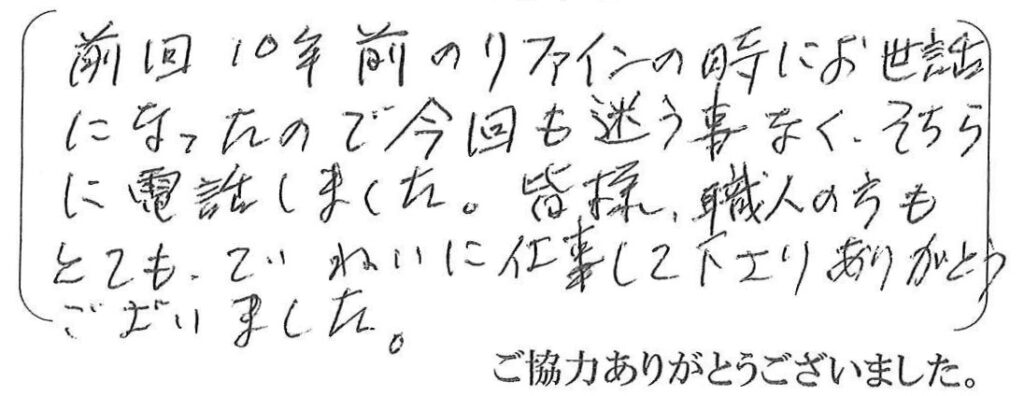 前回10年前のリファインの時にお世話
になったので今回も迷う事なく、そちら
に電話しました。皆様、職人の方も
とても、ていねいに仕事して下さりありがとう
ございました。
ご協力ありがとうございました。